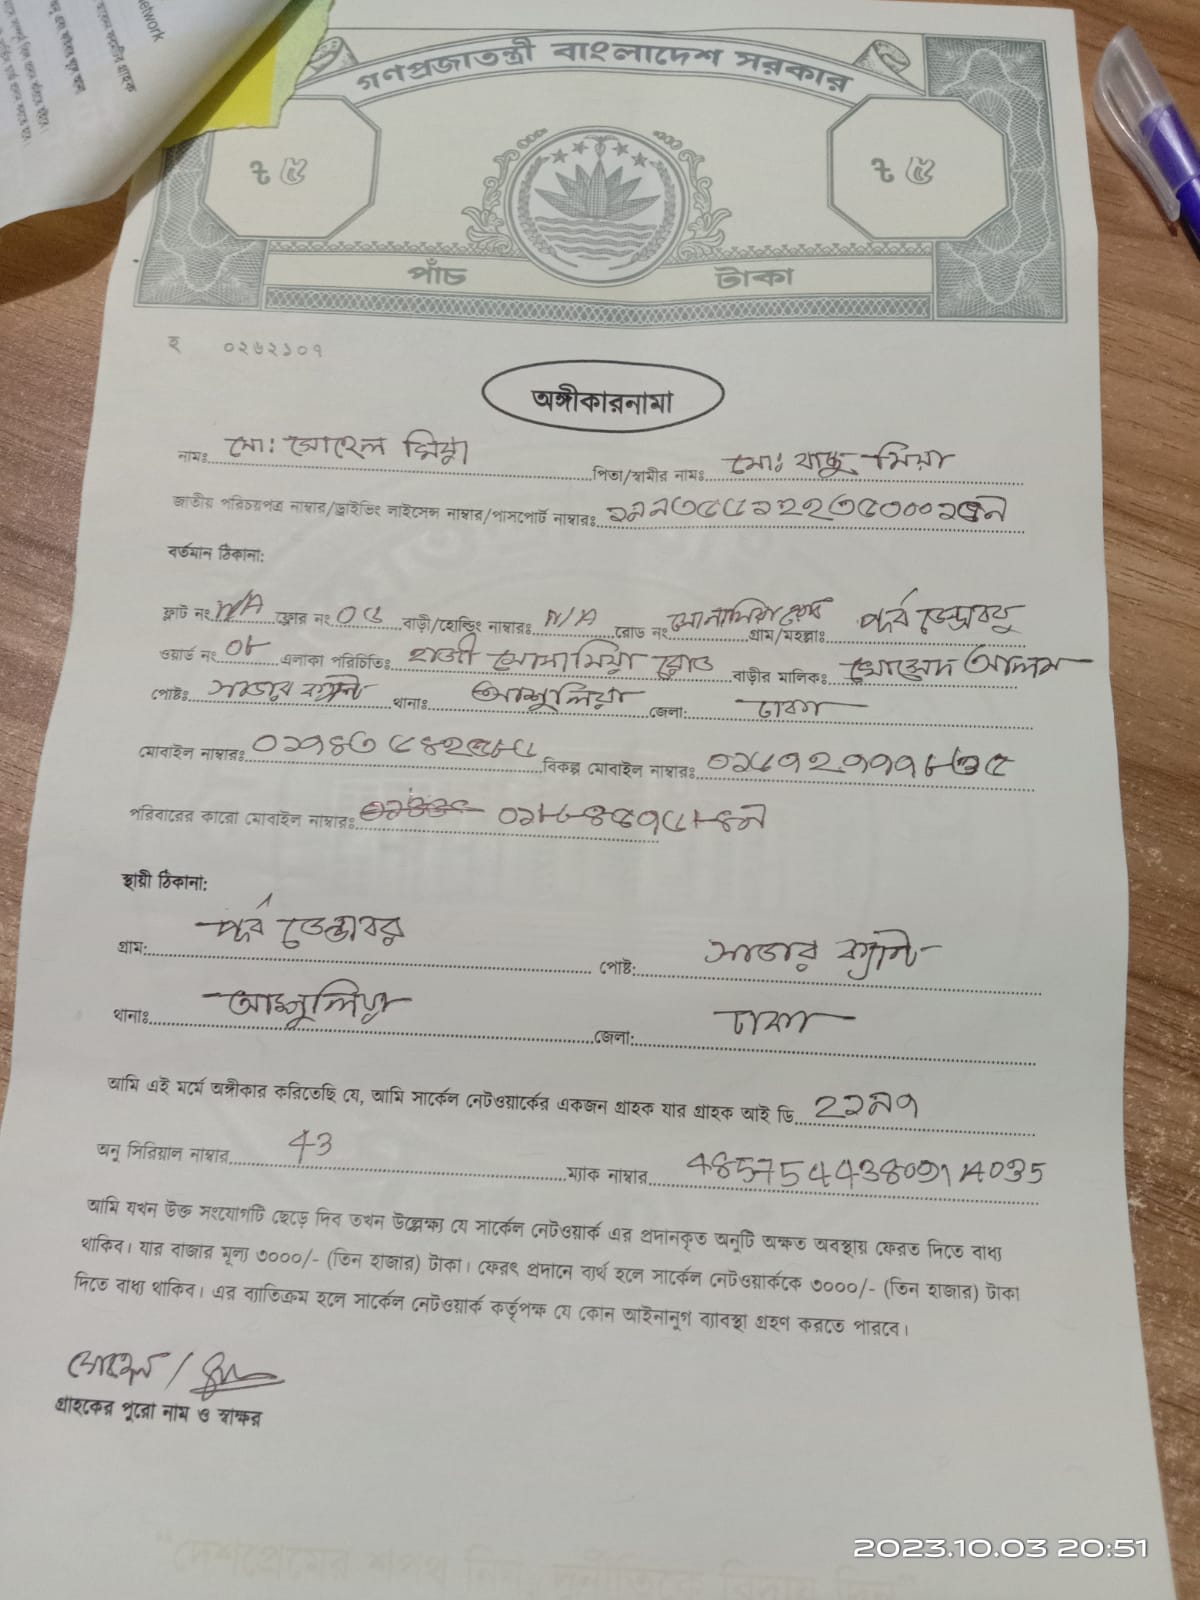 network
গণপ্রজাতন্ত্রী বাংলাদেশ সরকার
৳ ৫ ৳ ৫
পাঁচ টাকা
হ ০২৬২১০৭
অঙ্গীকারনামা
নামঃ মো: সোহেল মিয়া পিতা/স্বামীর নামঃ মোঃ বাচ্চু মিয়া
জাতীয় পরিচয়পত্র নাম্বার/ড্রাইভিং লাইসেন্স নাম্বার/পাসপোর্ট নাম্বারঃ
বর্তমান ঠিকানা:
ফ্লাট নং N/A ফ্লোর নং ০৫ বাড়ী/হোল্ডিং নাম্বারঃ N/A রোড নং সোনামিয়া রোড গ্রাম/মহল্লাঃ পূর্ব ডেন্ডাবর
ওয়ার্ড নং ০৮ এলাকা পরিচিতিঃ হাজী সোনামিয়া রোড বাড়ীর মালিকঃ খোরশেদ আলম
পোষ্টঃ সাভার ক্যান্ট থানাঃ আশুলিয়া জেলা: ঢাকা
মোবাইল নাম্বারঃ বিকল্প মোবাইল নাম্বারঃ
পরিবারের কারো মোবাইল নাম্বারঃ
স্থায়ী ঠিকানা:
গ্রাম: পূর্ব ডেন্ডাবর পোষ্ট: সাভার ক্যান্ট
থানাঃ আশুলিয়া জেলা: ঢাকা
আমি এই মর্মে অঙ্গীকার করিতেছি যে, আমি সার্কেল নেটওয়ার্কের একজন গ্রাহক যার গ্রাহক আই ডি ২১৯৭
অনু সিরিয়াল নাম্বার 43 ম্যাক নাম্বার
আমি যখন উক্ত সংযোগটি ছেড়ে দিব তখন উল্লেক্ষ্য যে সার্কেল নেটওয়ার্ক এর প্রদানকৃত অনুটি অক্ষত অবস্থায় ফেরত দিতে বাধ্য
থাকিব। যার বাজার মূল্য ৩০০০/- (তিন হাজার) টাকা। ফেরৎ প্রদানে ব্যর্থ হলে সার্কেল নেটওয়ার্ককে ৩০০০/- (তিন হাজার) টাকা
দিতে বাধ্য থাকিব। এর ব্যাতিক্রম হলে সার্কেল নেটওয়ার্ক কর্তৃপক্ষ যে কোন আইনানুগ ব্যাবস্থা গ্রহণ করতে পারবে।
সোহেল /
গ্রাহকের পুরো নাম ও স্বাক্ষর
"দেশপ্রেমের শপথ নিন, দুর্নীতিকে বিদায় দিন"
2023.10.03 20:51